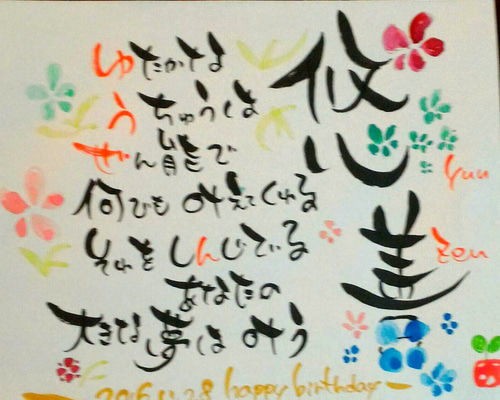 悠善
yuu
zen
ゆたかな
うちゅうは
ぜん能で
何でも叶えてくれる
それをしんじている
あなたの
大きな夢は叶う
happy birthday